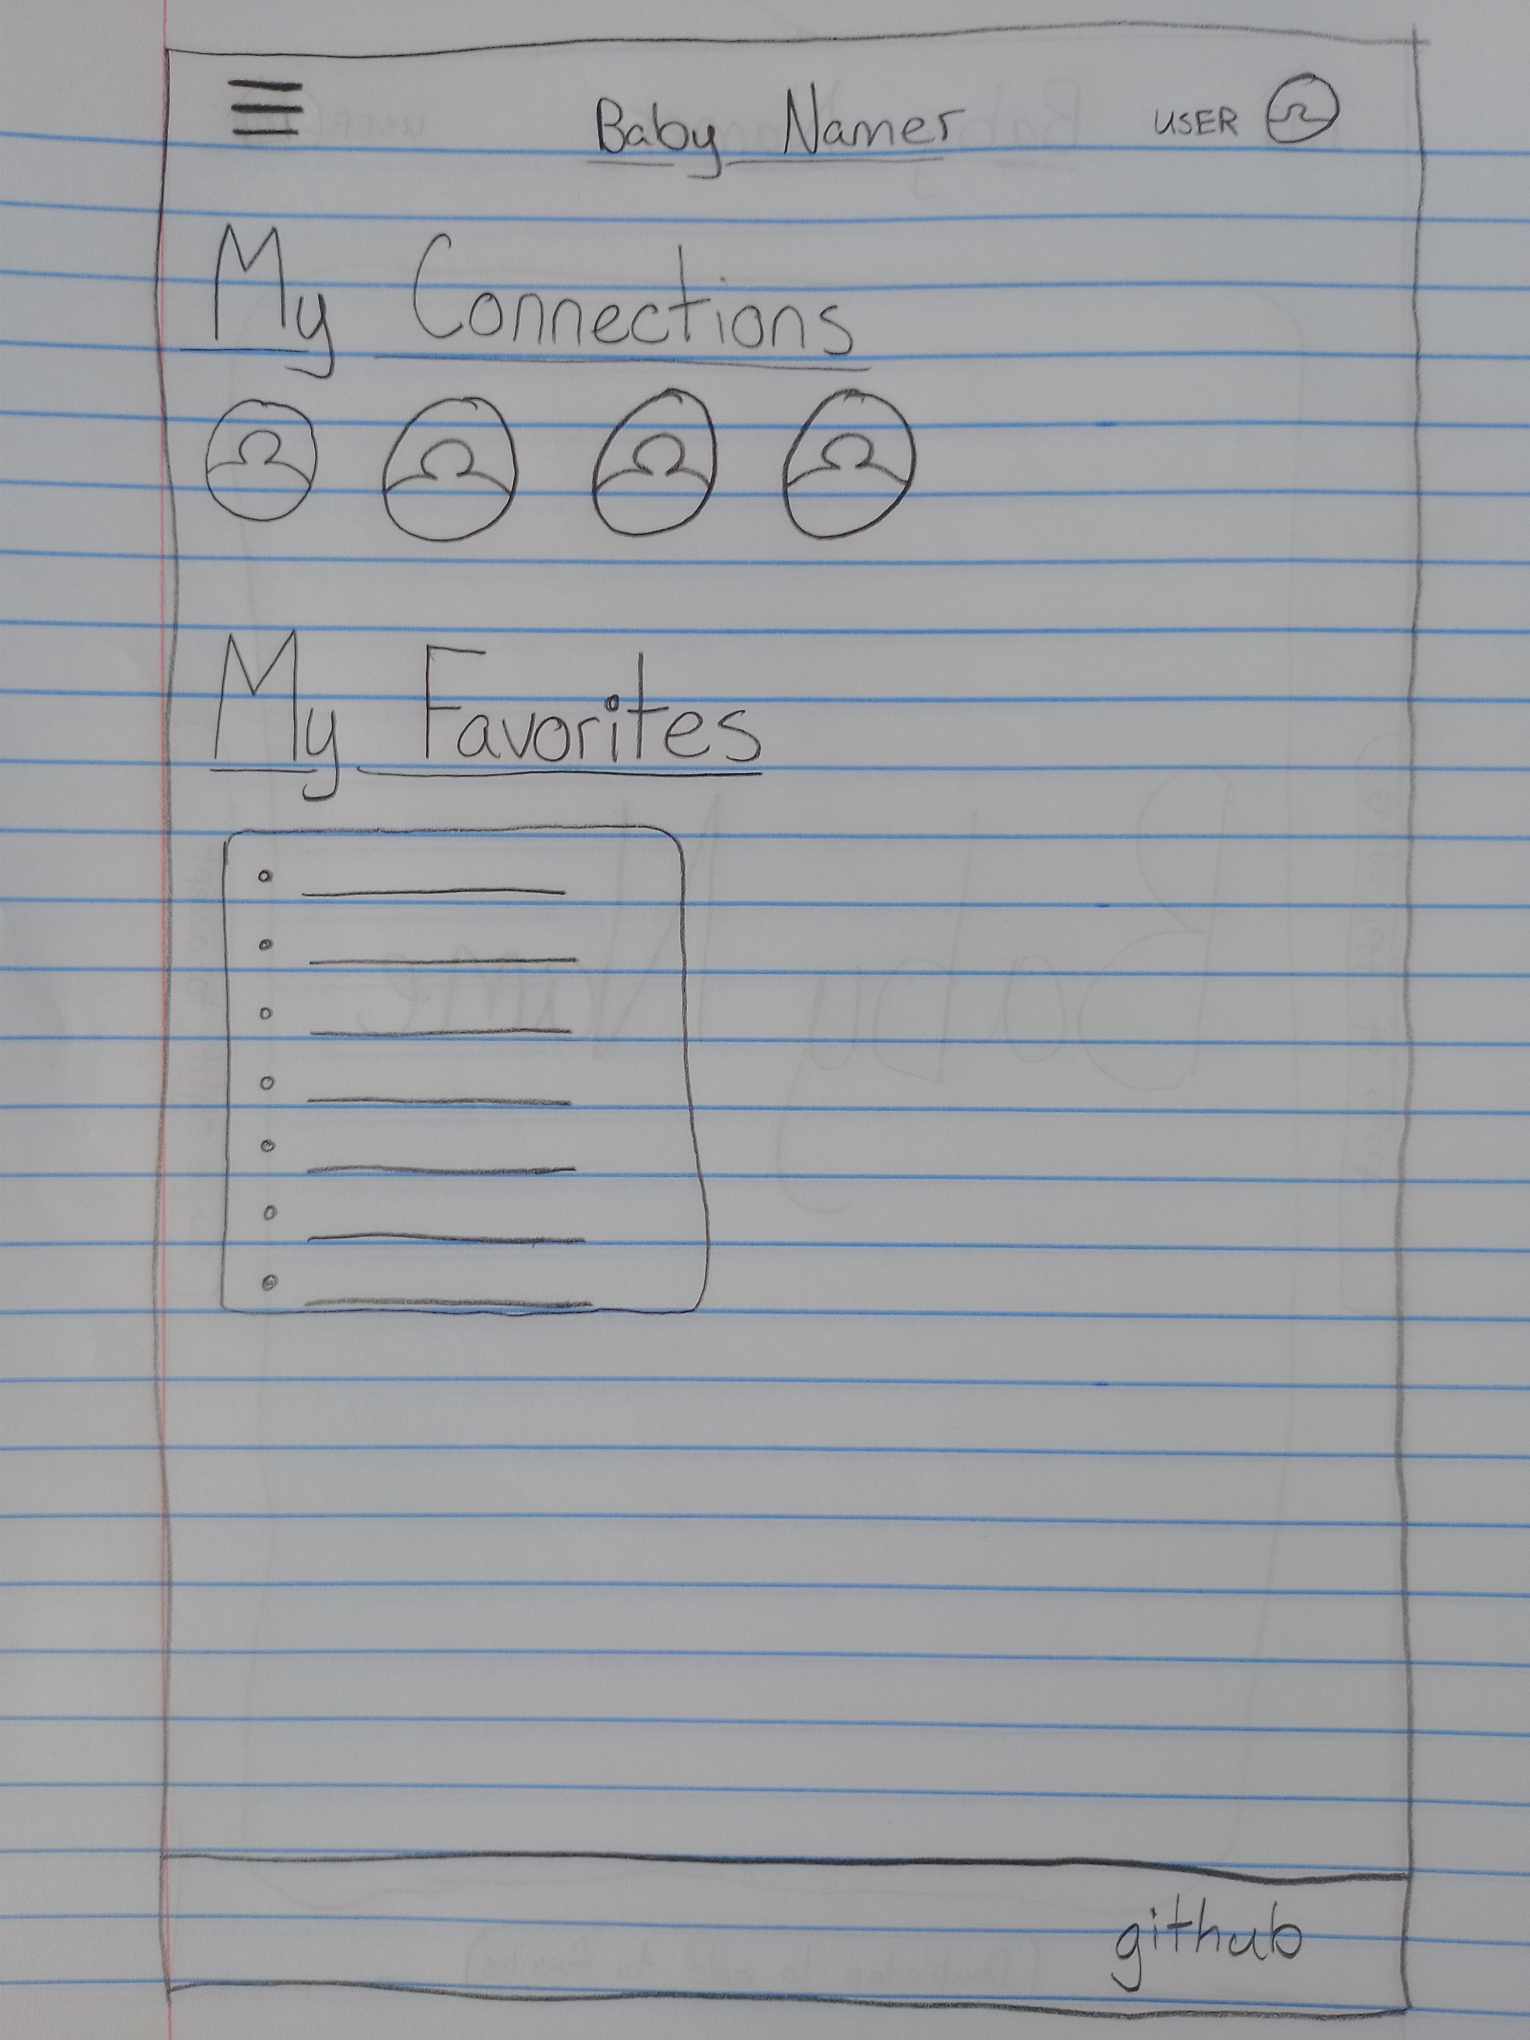 Baby Namer USER
My Connections
My Favorites
github